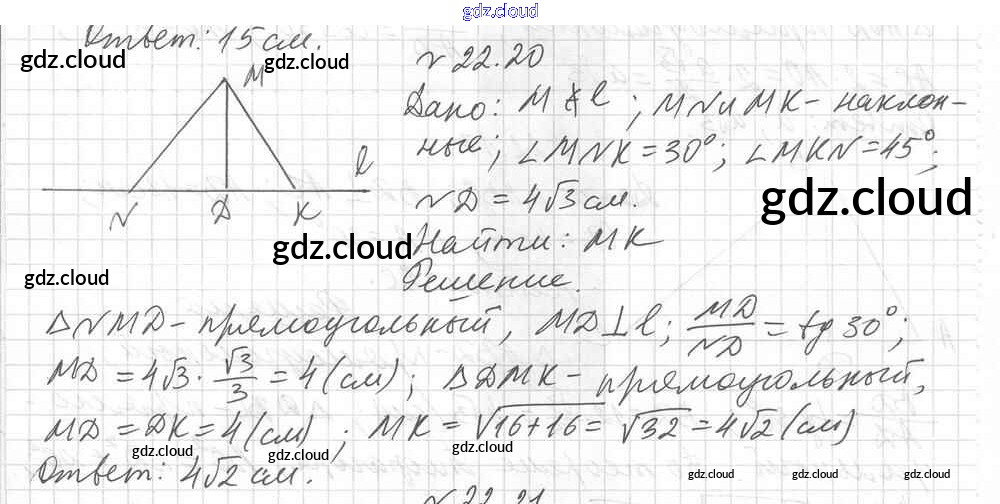 gdz.cloud
Ответ: 15 см.
gdz.cloud
gdz.cloud
M
l
N
D
K
№ 22.20
Дано: M ∉ l ; MN и MK - наклон-
ные; ∠MNK = 30°; ∠MKN = 45°;
ND = 4√3 см.
gdz.cloud
Найти: MK
gdz.cloud
gdz.cloud
Решение.
ΔNMD - прямоугольный, MD⊥l; MD/ND = tg 30°;
MD = 4√3 · √3/3 = 4 (см); ΔDMK - прямоугольный,
MD = DK = 4 (см) ; MK = √16+16 = √32 = 4√2 (см)
gdz.cloud
gdz.cloud
Ответ: 4√2 см.
gdz.cloud
gdz.cloud
gdz.cloud
№ 22.21